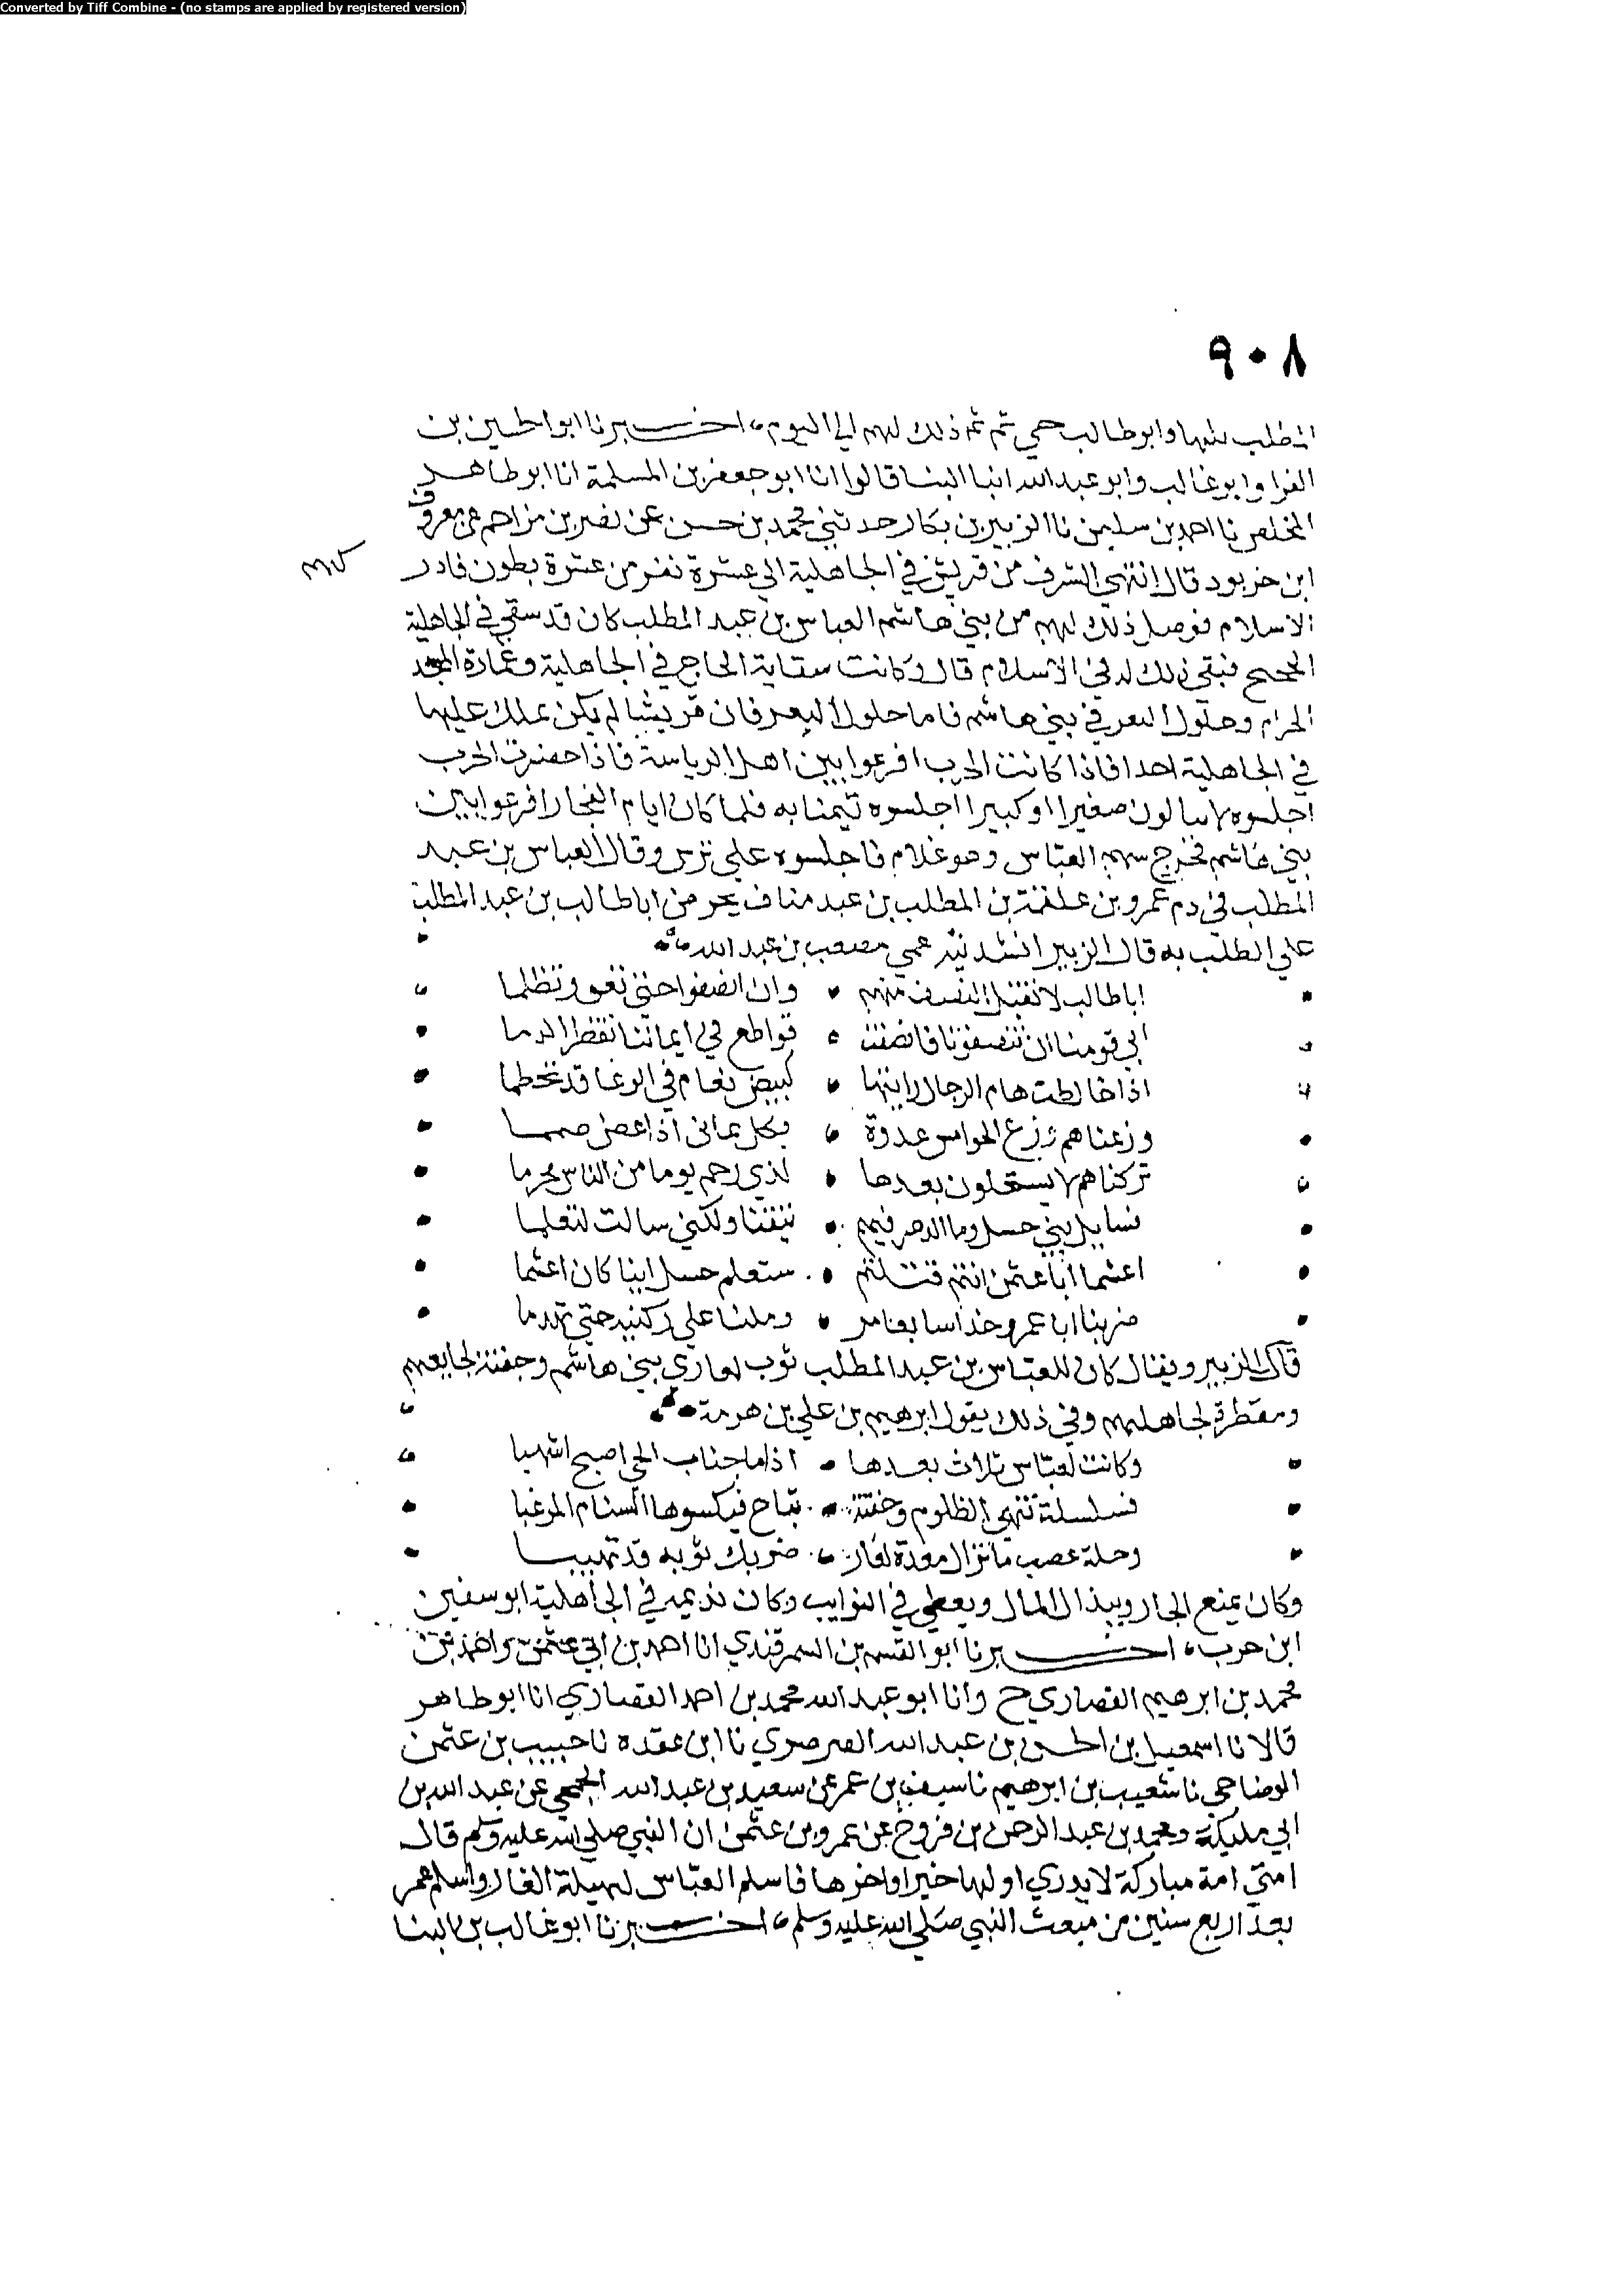 Converted by Tiff Combine - (no stamps are applied by registered version)
٩٠٨
المطلب وابو طالب حي ثم تم ذلك لهم الى اليوم، اخبرنا ابو الحسين بن
الفرا وابو غالب وابو عبد الله ابنا البنا قالوا انا ابو جعفر بن المسلمة انا ابو طاهر
المخلص نا احمد بن سليمن نا الزبير بن بكار حدثني محمد بن حسن عن نصر بن مزاحم عن معروف
ابن خربود قال انتهى الشرف من قريش في الجاهلية الى عشرة نفر من عشرة بطون فادر
كهم
الاسلام فوصل ذلك لهم من بني هاشم العباس بن عبد المطلب كان قد سقي في الجاهلية
الحجيج فبقي ذلك له في الاسلام قال وكانت سقاية الحاج في الجاهلية وعمارة المسجد
الحرام وحلول النفر في بني هاشم فاما حلول النفر فان قريشا لم يكن يملك عليها
في الجاهلية احدا فاذا كانت الحرب اقرعوا بين اهل الرياسة فاذا حضرت الحرب
اجلسوه لا يبالون صغيرا او كبيرا اجلسوه تيمنا به فلما كان ايام الفجار اقرعوا بين
بني هاشم فخرج سهم العباس وهو غلام فاجلسوه على ترس وقال العباس بن عبد
المطلب في دم عمرو بن علقمة بن المطلب بن عبد مناف يحرض ابا طالب بن عبد المطلب
علي الطلب به قال الزبير انشدنيه عمي مصعب بن عبد الله
ابا طالب لا تقبل النصف منهم وان انصفوا حتى تعق وتظلما
ابي قومنا ان تنصفونا فانصفت قواطع في ايماننا تقطر الدما
اذا خالطت هام الرجال رايتها كبيض نعام في الوغا قد تحطما
وزعناهم وزع الحوامس غدوة بكل يماني اذا عض صمما
تركناهم لا يستحلون بعدها لذي رحم يوما من الناس محرما
فسايل بني حسل وما الدهر فيهم ولكني سالت لتعلما
اعشما ابا عثمن انتم قتلتم ستعلم حسل اينا كان اعشما
ضربنا ابا عمرو خداسا بعامر وملنا على ركنيه حتى تهدما
قال الزبير ويقال كان للعباس بن عبد المطلب ثوب لعاري بني هاشم وجفنة لجايعهم
ومقطرة لجاهلهم وفي ذلك يقول ابرهيم بن علي بن هرمة
وكانت لعباس ثلاث بعدها اذا ما جناب الحي اصبح اشهبا
فسلسلة تنهى الظلوم وجفنة تباح فيكسوها السنام المرغبا
وحلة عصب ما تزال معدة لعار ضريك ثوبه قد تهببا
وكان يمنع الجار ويبذل المال ويعطي في النوايب وكان نديمه في الجاهلية ابو سفين
ابن حرب، اخبرنا ابو القسم بن السمرقندي انا احمد بن ابي عثمن واحمد بن
محمد بن ابرهيم القصاري ح وانا ابو عبد الله محمد بن احمد القصاري انا ابو طاهر
قالا نا اسمعيل بن الحسن بن عبد الله الصرصري نا ابن عقده نا حبيب بن عثمن
الوضاحي نا شعيب بن ابرهيم نا سيف بن عمر عن سعيد بن عبد الله الجمحي عن عبد الله بن
ابي مليكة ومحمد بن عبد الرحمن بن فروخ عن عمرو بن عثمن ان النبي صلى الله عليه وسلم قال
امتي امة مباركة لا يدري اولها خير او اخرها فاسلم العباس ليلة الغار واسلم عمر
بعد اربع سنين من مبعث النبي صلى الله عليه وسلم، اخبرنا ابو غالب بن البنا